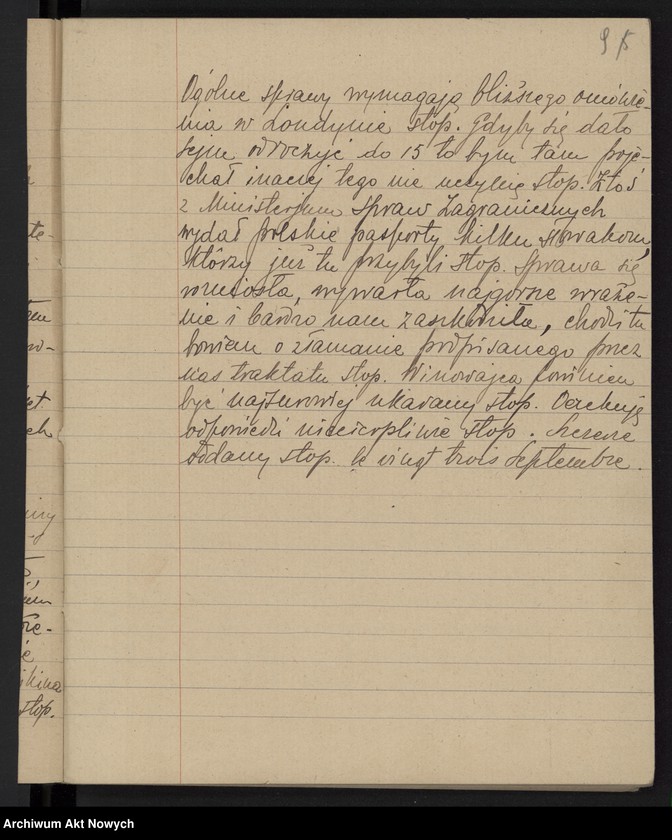 95
Ogólne sprawy wymagają bliższego omówie-
nia w Londynie stop. Gdyby się dało
Sejm odroczyć do 15 to bym tam poje-
chał inaczej tego nie uczynię stop. Ktoś
z Ministerjum Spraw Zagranicznych
wydał polskie pasporty kilku słowakom,
którzy już tu przybyli stop. Sprawa się
rozniosła, wywarła najgorsze wraże-
nie i bardzo nam zaszkodziła, chodzi tu
bowiem o złamanie podpisanego przez
nas traktatu stop. Winowajca powinien
być najsurowiej ukarany stop. Oczekuję
odpowiedzi niecierpliwie stop. Szczerze
oddany stop. le vingt trois Septembre.
te-
w-
pt.
ch
kina
stop.
Archiwum Akt Nowych